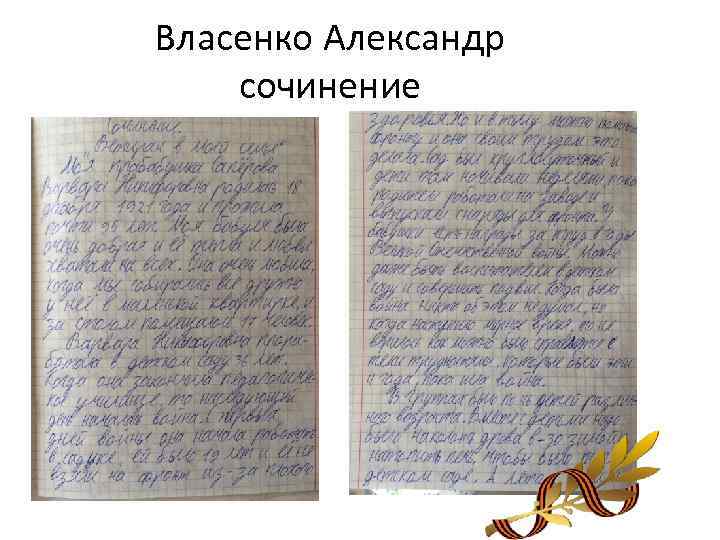 Власенко Александр
сочинение
Сочинение.
"Ветеран в моей семье"
Моя прабабушка
Варвара Никифоровна родилась 18
декабря 1921 года и прожила
почти 95 лет. Моя бабушка была
очень добрая и её тепла и любви
хватало на всех. Она очень любила,
когда мы собирались все дружно
у неё в маленькой квартирке, и
за столом помещалось 17 человек.
Варвара Никифоровна прора-
ботала в детском саду лет.
Когда она закончила педагогичес-
кое училище, то на следующий
день началась война. С первых
дней войны она начала работать
в садике. ей было 19 лет и её не
взяли на фронт из-за плохого
здоровья. Но и в тылу можно помочь
фронту и она своим трудом это
делала. Сад был круглосуточный и
дети там ночевали неделями, пока
родители работали на заводе и
выпускали снаряды для фронта. У
бабушки есть награды за труд в годы
Великой отечественной войны. Можно
даже быть воспитателем в детском
саду и совершать подвиг. Когда была
война никто об этом не думал, но
когда наступило мирное время, то не
верилось как можно было справиться с
теми трудностями, которые были в эти
годы, пока шла война.
В группах было по детей различ-
ного возраста. Вместе с детьми надо
было наколоть дрова
натопить печь, чтобы было тепло в
детском саде. А летом